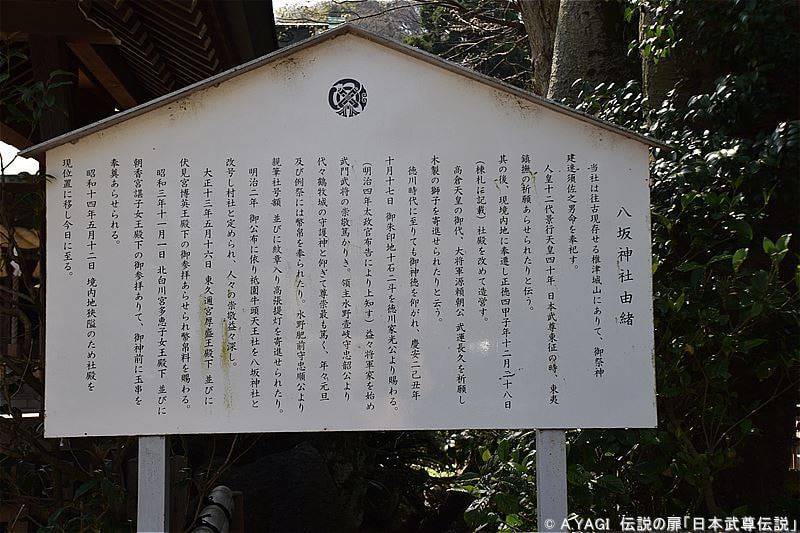 八坂神社由緒
当社は往古現存せる椎津城山にありて、御祭神
建速須佐之男命を奉祀す。
人皇十二代景行天皇四十年、日本武尊東征の時、東夷
鎮撫の祈願あらせられたりと伝う。
其の後、現境内地に奉遷し正徳四甲子年十二月二十八日
(棟札に記載) 社殿を改めて造営す。
高倉天皇の御代、大将軍源頼朝公 武運長久を祈願し
木製の獅子を寄進せられたりと云う。
徳川時代に至りても御神徳を仰がれ、慶安二己丑年
十月十七日 御朱印地十石二斗を徳川家光公より賜わる。
(明治四年太政官布告により上知す) 益々将軍家を始め
武門武将の崇敬篤かりき。領主水野壱岐守忠韶公より
代々鶴牧城の守護神と仰ぎて尊崇最も篤く、年々元旦
及び例祭には幣帛を奉られたり。水野肥前守忠順公より
親筆社号額 並びに紋章入り高張提灯を寄進せられたり。
明治二年 御公布に依り祇園牛頭天王社を八坂神社と
改号し村社と定められ、人々の崇敬益々深し。
大正十三年五月十六日 東久邇宮盛厚王殿下 並びに
伏見宮博英王殿下の御参拝あらせられ幣帛料を賜わる。
昭和三年十一月一日 北白川宮多恵子女王殿下 並びに
朝香宮湛子女王殿下の御参拝ありて、御神前に玉串を
奉奠あらせられる。
昭和十四年五月十二日 境内地狭隘のため社殿を
現位置に移し今日に至る。
© A.YAGI 伝説の扉「日本武尊伝説」